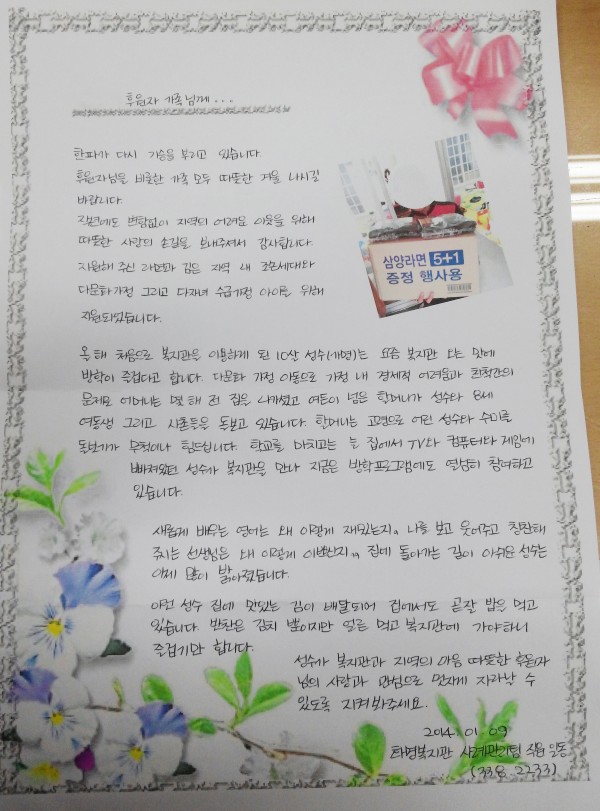 후원자 가족님께...
한파가 다시 기승을 부리고 있습니다.
후원자님을 비롯한 가족 모두 따뜻한 겨울 나시길
바랍니다.
작년에도 변함없이 지역의 어려운 이웃을 위해
따뜻한 사랑의 손길을 보내주셔서 감사합니다.
지원해 주신 라면과 김은 지역 내 조손세대와
다문화가정 그리고 다자녀 수급가정 아이를 위해
지원되었습니다.
삼양라면 5+1
증정 행사용
올해 처음으로 복지관을 이용하게 된 10살 성수(가명)는 요즘 복지관 오는 맛에
방학이 즐겁다고 합니다. 다문화 가정 아동으로 가정 내 경제적 어려움과 친척간의
문제로 어머니는 몇 해 전 집을 나가셨고 여든이 넘은 할머니가 성수와 8세
여동생 그리고 사촌들을 돌보고 있습니다. 할머니는 고령으로 어린 성수와 수미를
돌보기가 무척이나 힘드십니다. 학교를 마치고는 늘 집에서 TV와 컴퓨터와 게임에
빠져있던 성수가 복지관을 만나 지금은 방학프로그램에도 열심히 참여하고
있습니다.
새롭게 배우는 영어는 왜 이렇게 재밌는지, 나를 보고 웃어주고 칭찬해
주시는 선생님은 왜 이렇게 이쁘신지, 집에 돌아가는 길이 아쉬운 성수는
이제 많이 밝아졌습니다.
이런 성수 집에 맛있는 김이 배달되어 집에서도 곧잘 밥을 먹고
있습니다. 반찬은 김치 뿐이지만 얼른 먹고 복지관에 가야하니
즐겁기만 합니다.
성수가 복지관과 지역의 마음 따뜻한 후원자
님의 사랑과 관심으로 멋지게 자라날 수
있도록 지켜봐주세요.
2014. 01. 09
태평복지관 사례관리팀 직원 일동
(338. 2733)